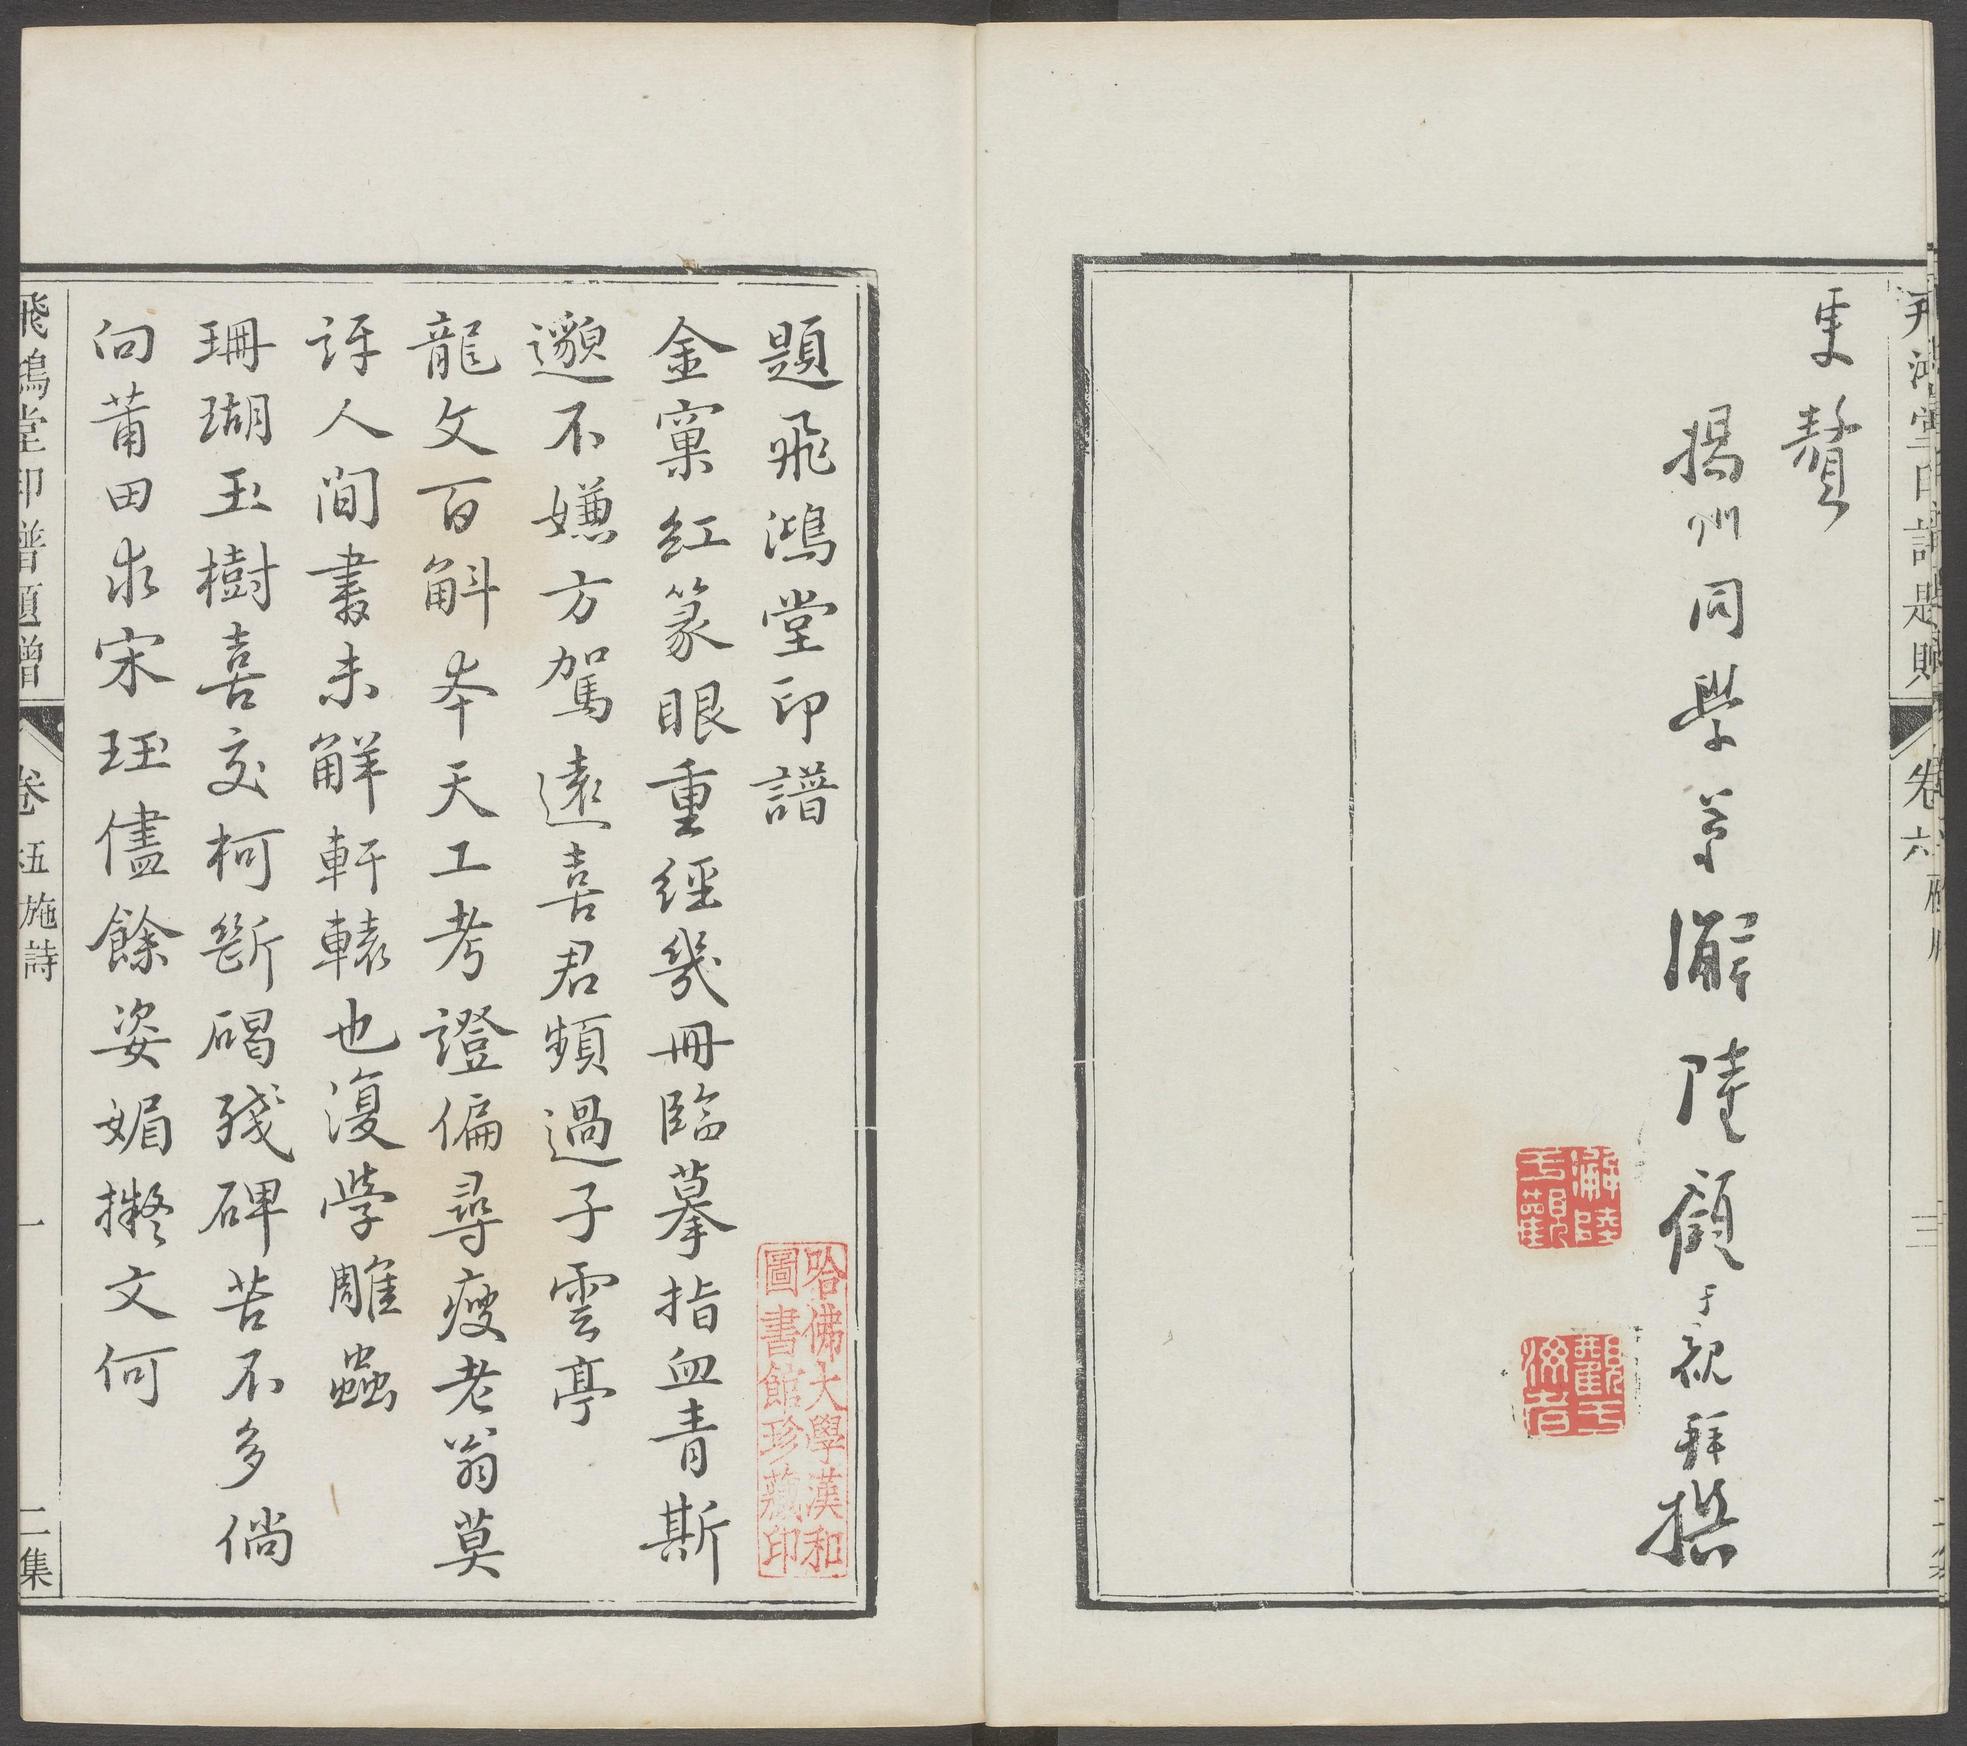 更贅
揚州同學弟懈陸顧于觀拜撰
題飛鴻堂印譜
金窠紅篆眼重經幾冊臨摹指血青斯
邈不嫌方駕遠喜君頻過子雲亭
龍文百斛夲天工考證偏尋瘦老翁莫
訝人間書未觧軒轅也復學雕蟲
珊瑚玉樹喜交柯斷碣殘碑苦不多倘
向莆田求宋珏儘餘姿媚擬文何
哈佛大學漢和
圖書館珍藏印
飛鴻堂印譜題贈
卷五施詩
一
二集